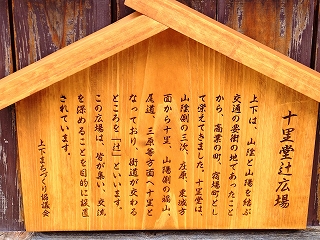 十里堂辻広場
上下は、山陰と山陽を結ぶ
交通の要衝の地であったこと
から、商業の町、宿場町とし
て栄えてきました。十里堂は、
山陰側の三次、庄原、東城方
面から十里、山陽側の福山、
尾道、三原等方面へ十里と
なっており、街道が交わる
ところを「辻」といいます。
この広場は、皆が集い、交流
を深めることを目的に設置
されています。
上下まちづくり協議会